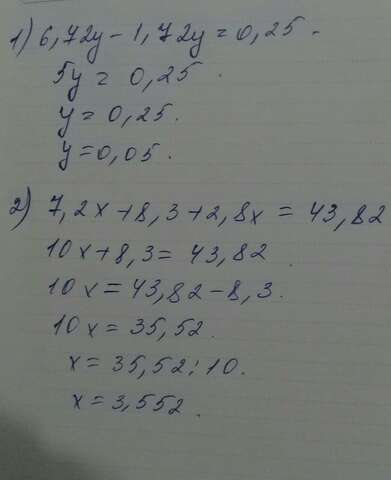 1) 6,72y - 1,72y = 0,25.
5y = 0,25.
y = 0,25.
y = 0,05.
2) 7,2x + 8,3 + 2,8x = 43,82
10x + 8,3 = 43,82.
10x = 43,82 - 8,3.
10x = 35,52.
x = 35,52 : 10.
x = 3,552.